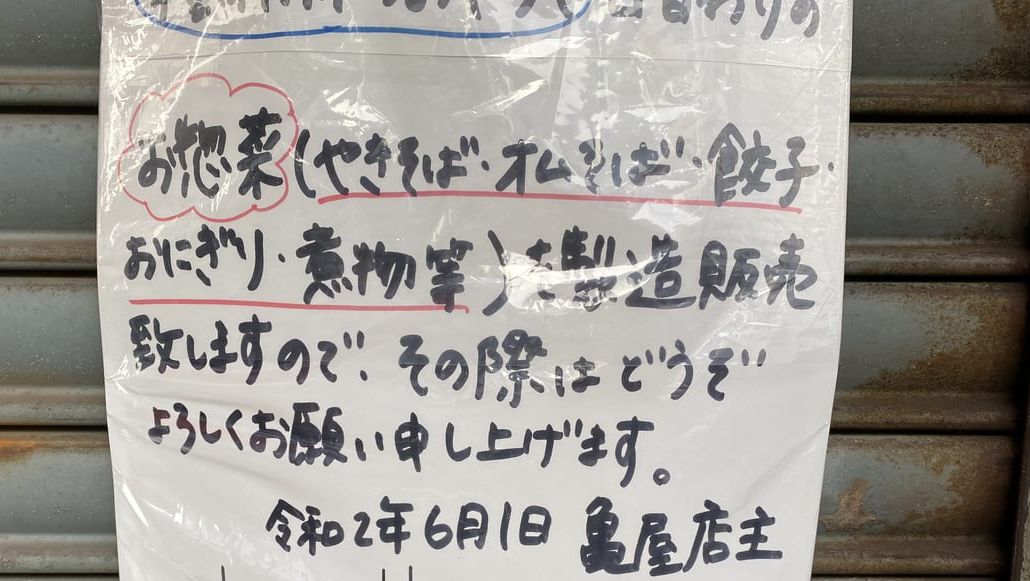 日替わりの
お惣菜(やきそば・オムそば・餃子・
おにぎり・煮物等)を製造販売
致しますので、その際はどうぞ
よろしくお願い申し上げます。
令和2年6月1日 亀屋店主